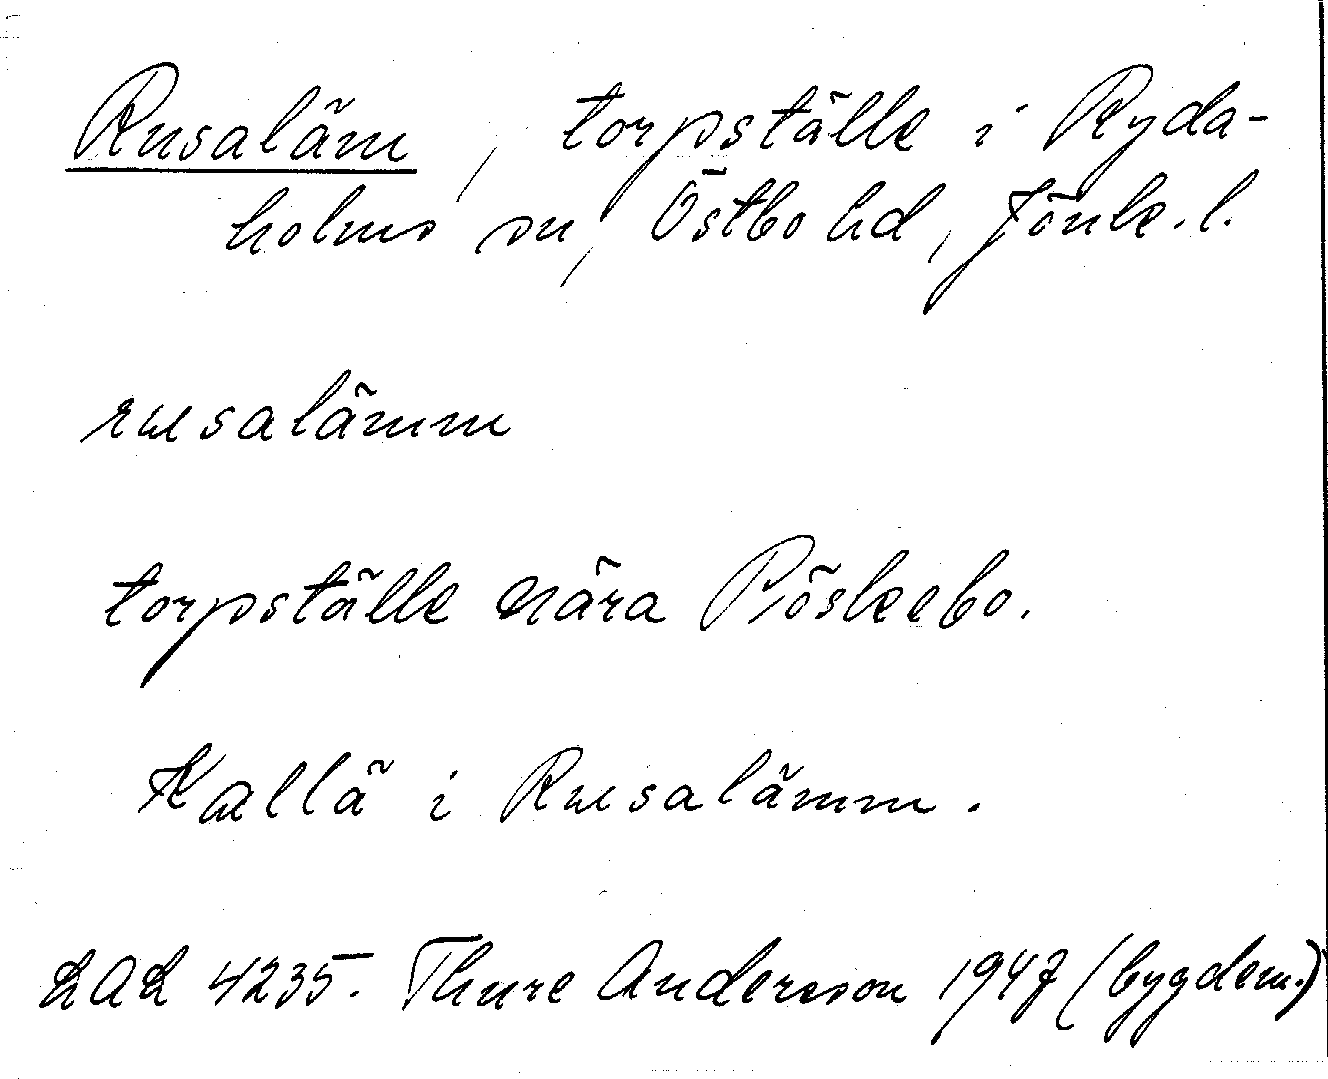 Rusaläm, torpställe i Ryda-
holms sn, Östbo hd, Jönk. l.
rusalämm
torpställe nära Pöskebo.
Kallä i Rusalämm.
LAL 4235. Thure Andersson 1947 (bygdem.)